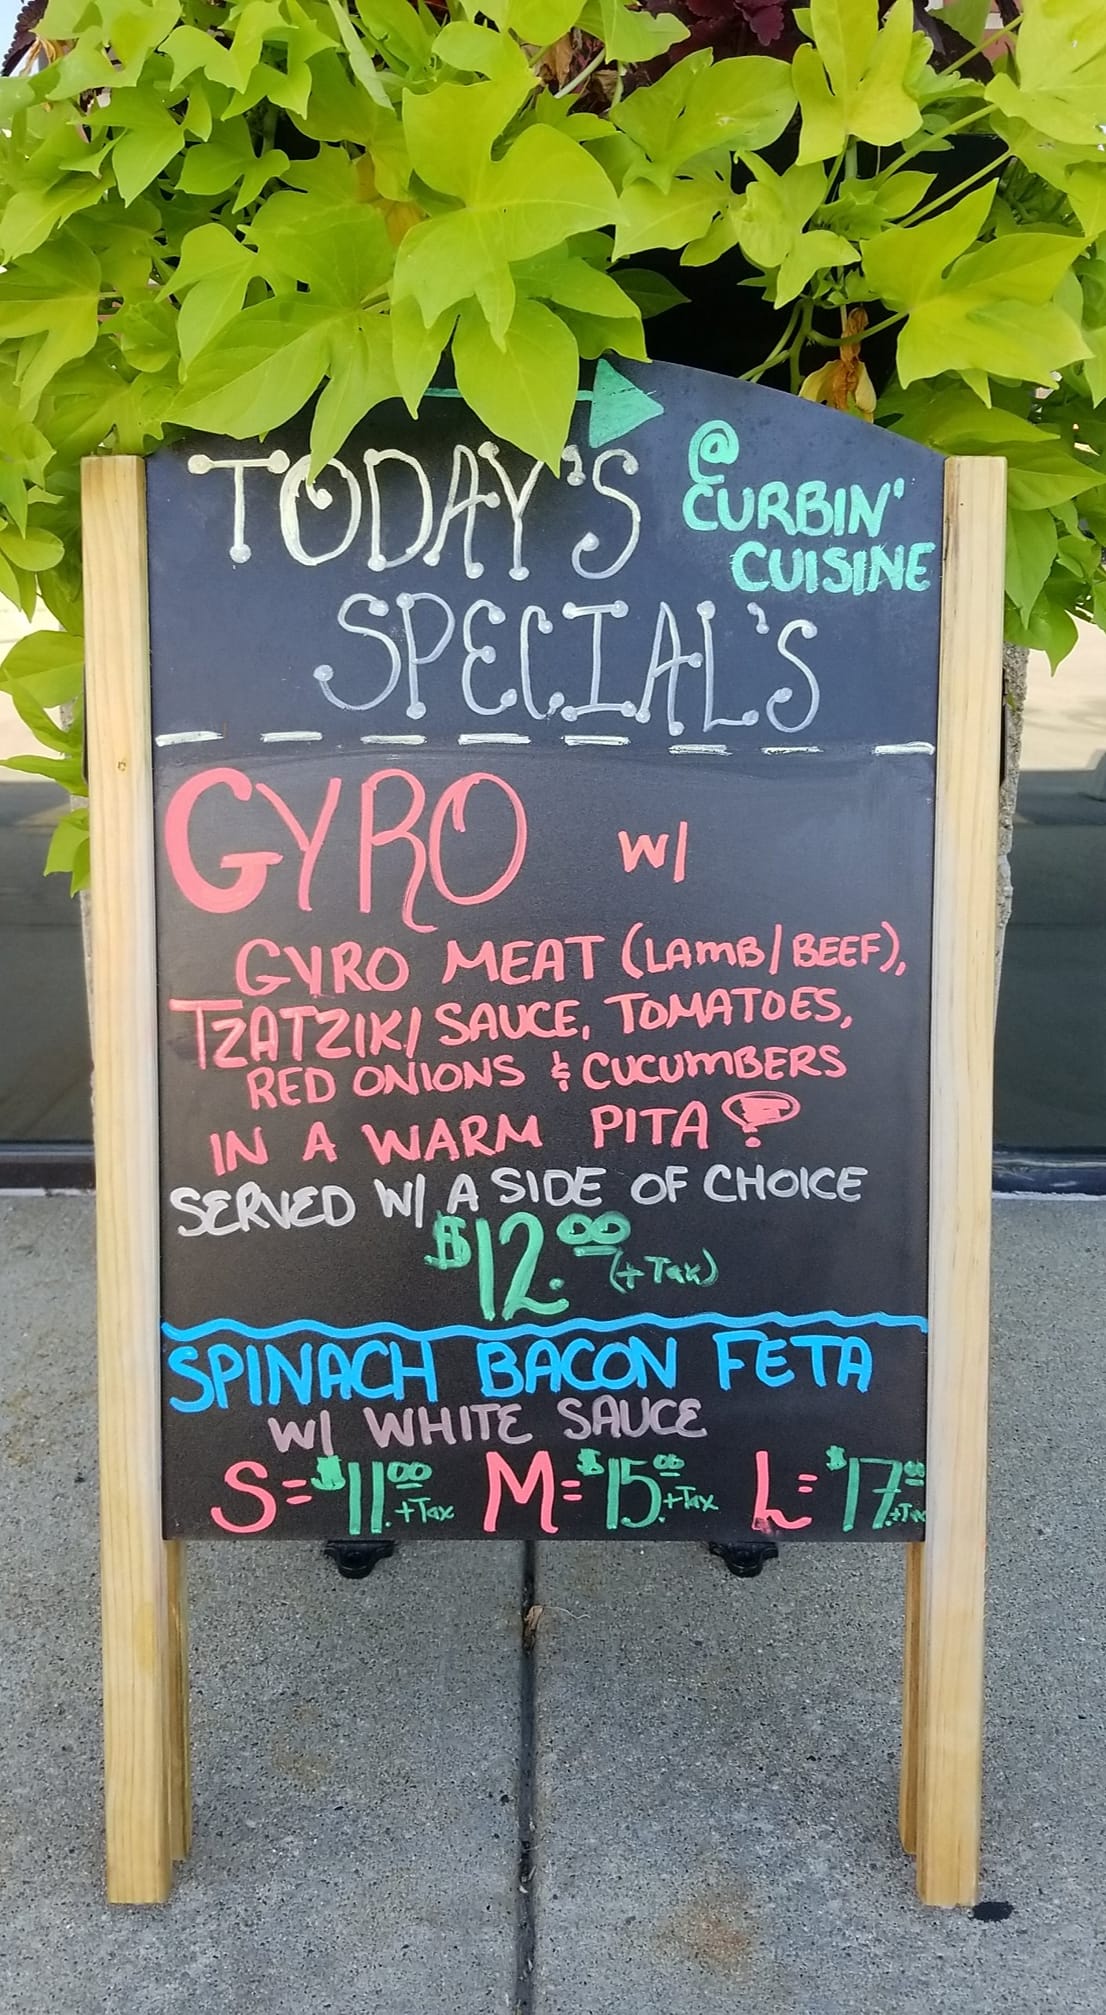 TODAY'S
@ CURBIN'
CUISINE
SPECIAL'S
GYRO w/
GYRO MEAT (LAMB/BEEF),
TZATZIKI SAUCE, TOMATOES,
RED ONIONS & CUCUMBERS
IN A WARM PITA!
SERVED W/ A SIDE OF CHOICE
$12.00 (+Tax)
SPINACH BACON FETA
W/ WHITE SAUCE
S=$11.00 +Tax M=$15.00 +Tax L=$17.00 +Tax